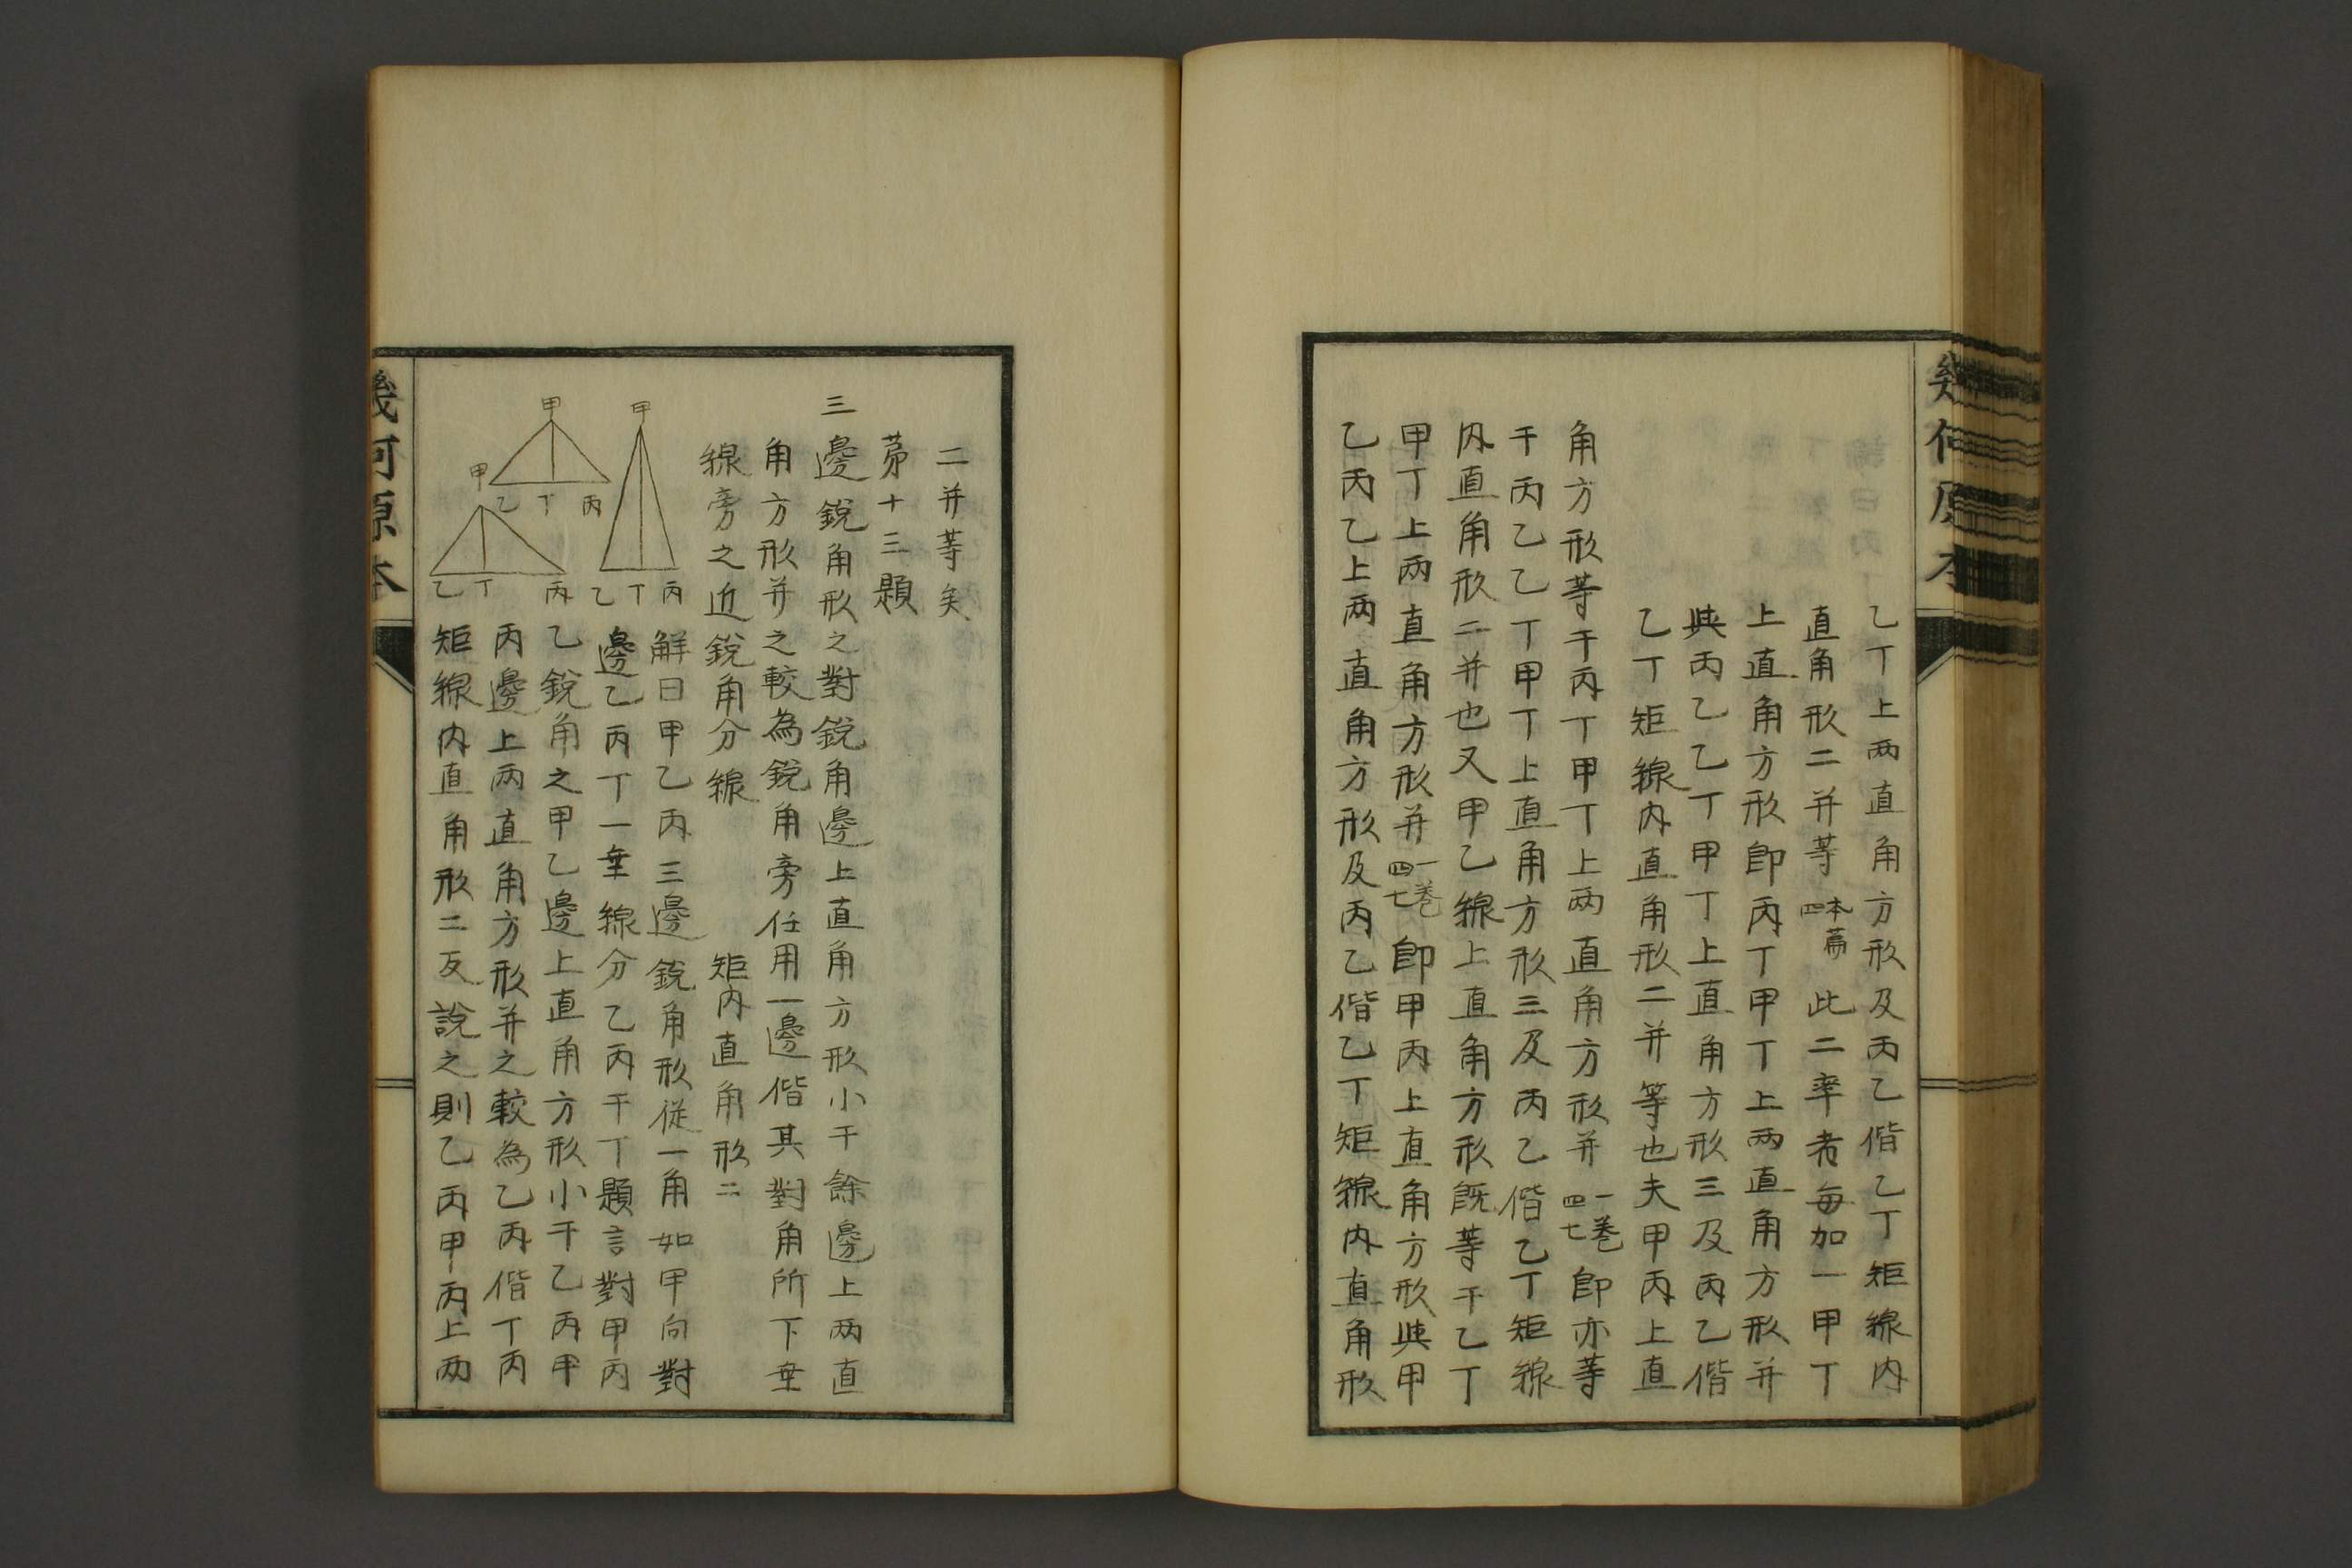 幾何原本
乙丁上兩直角方形及丙乙偕乙丁矩線內
直角形二并等本篇四此二率者每加一甲丁
上直角方形卽丙丁甲丁上兩直角方形并
與丙乙乙丁甲丁上直角方形三及丙乙偕
乙丁矩線內直角形二并等也夫甲丙上直
角方形等于丙丁甲丁上兩直角方形并一卷四七卽亦等
于丙乙乙丁甲丁上直角方形三及丙乙偕乙丁矩線
內直角形二并也又甲乙線上直角方形旣等于乙丁
甲丁上兩直角方形并一卷四七卽甲丙上直角方形與甲
乙丙乙上兩直角方形及丙乙偕乙丁矩線內直角形
二并等矣
第十三題
三邊銳角形之對銳角邊上直角方形小于餘邊上兩直
角方形并之較為銳角旁任用一邊偕其對角所下垂
線旁之近銳角分線 矩內直角形二
解曰甲乙丙三邊銳角形從一角如甲向對
邊乙丙丁一垂線分乙丙于丁題言對甲丙
乙銳角之甲乙邊上直角方形小于乙丙甲
丙邊上兩直角方形并之較為乙丙偕丁丙
矩線內直角形二反說之則乙丙甲丙上兩
甲
乙丁丙
甲
乙丁丙
甲
乙丁丙
幾何原本